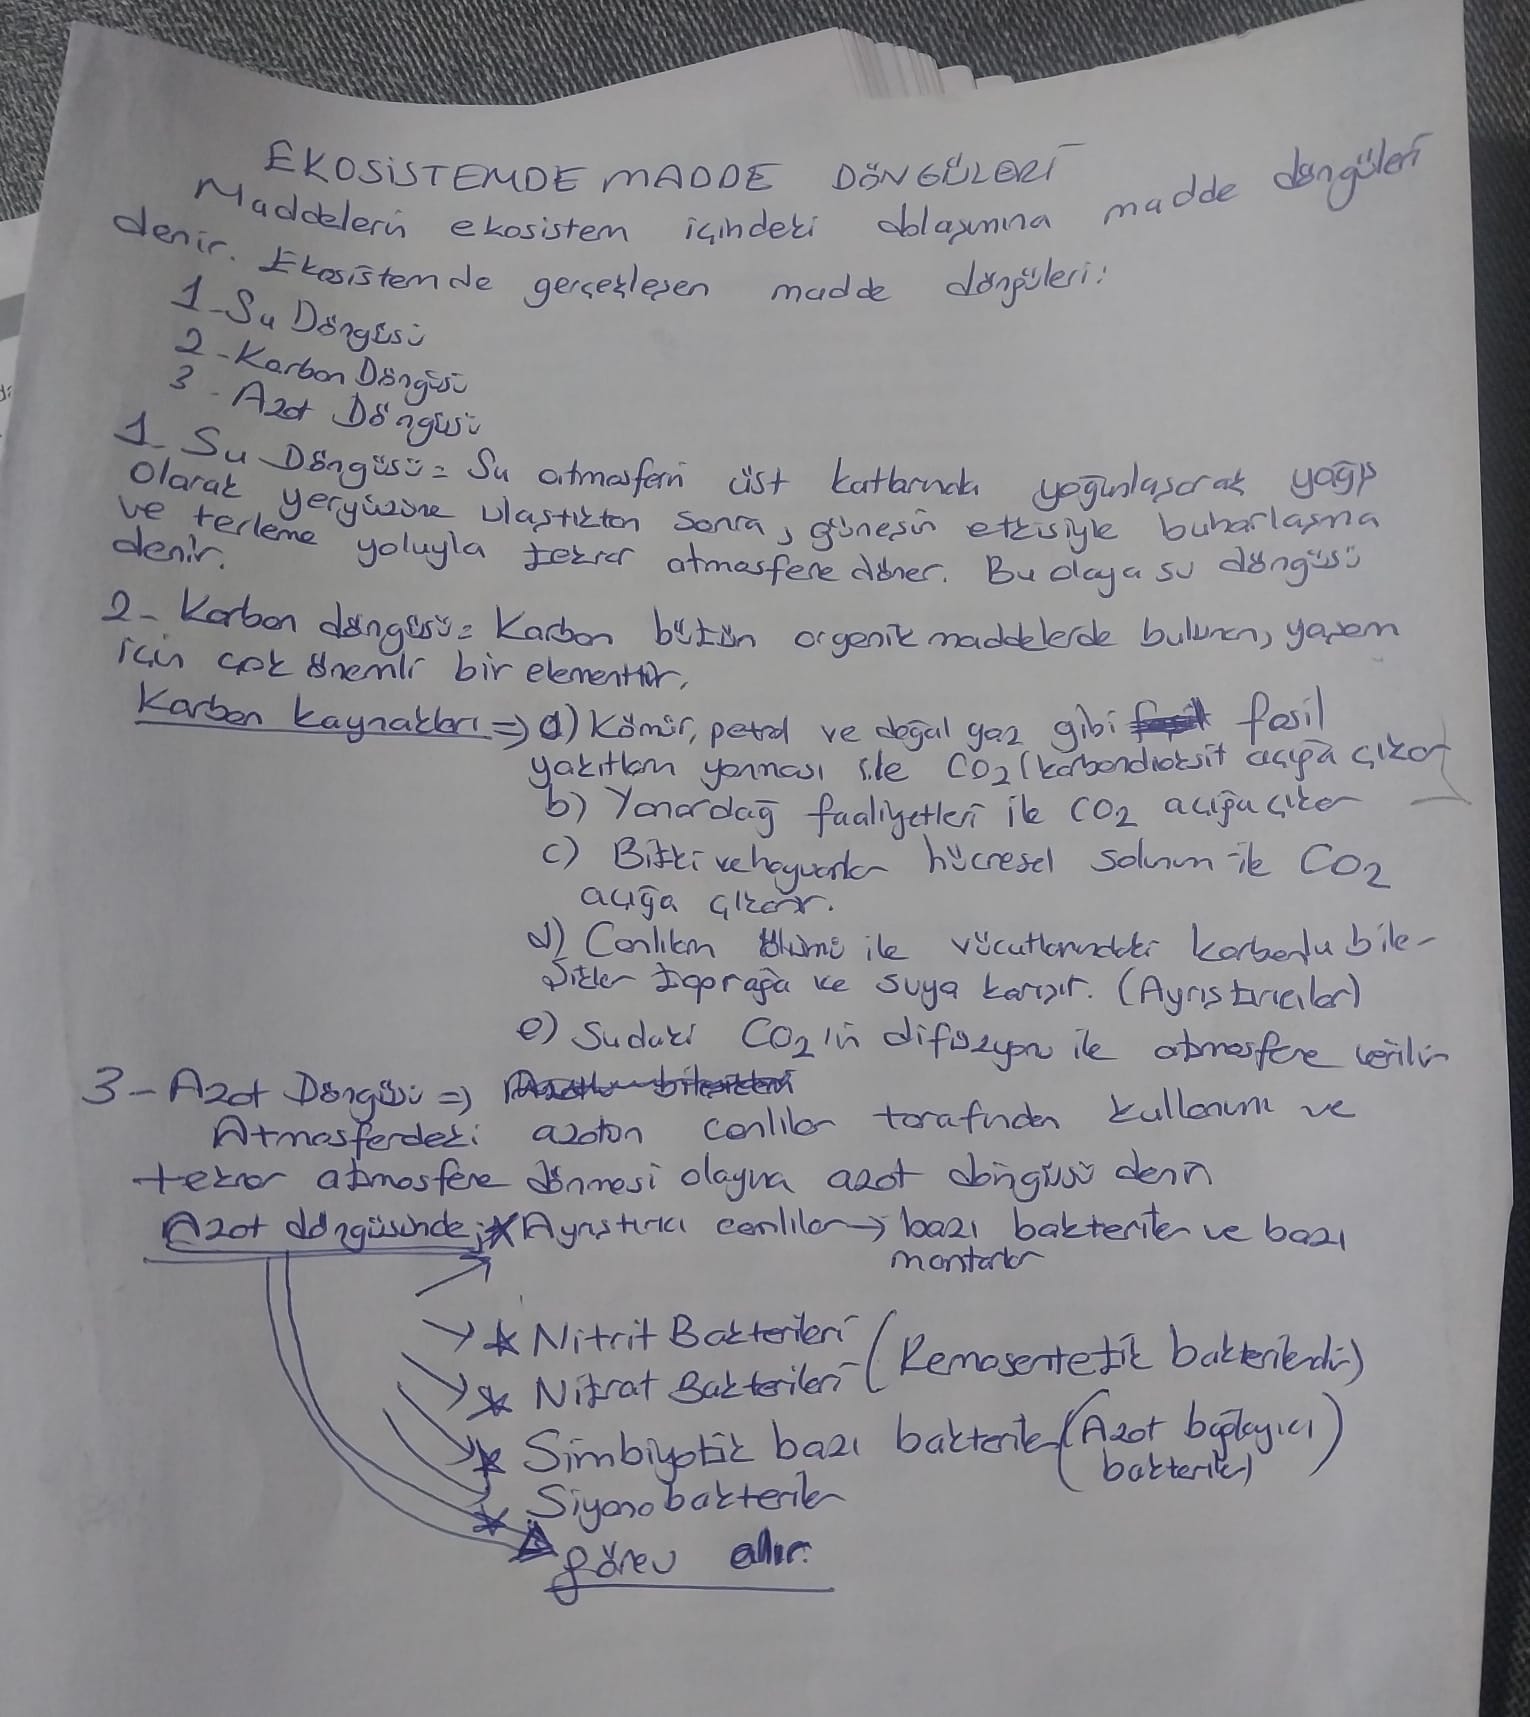 EKOSİSTEMDE MADDE DÖNGÜLERİ
Maddelerin ekosistem içindeki dolaşımına madde döngüleri
denir. Ekosistemde gerçekleşen madde döngüleri:
1-Su Döngüsü
2-Karbon Döngüsü
3-Azot Döngüsü
1-Su Döngüsü= Su atmosferin üst katlarında yoğunlaşarak yağış
olarak yeryüzüne ulaştıkton sonra, güneşin etkisiyle buharlaşma
ve terleme yoluyla tekrar atmosfere döner. Bu olaya su döngüsü
denir.
2-Karbon döngüsü= Karbon bütün organik maddelerde bulunan, yaşam
için çok önemli bir elementtir.
Karbon kaynakları => a) Kömür, petrol ve doğal gaz gibi fosil
yakıtların yanması ile CO2 (karbondioksit açığa çıkar
b) Yanardağ faaliyetleri ile CO2 açığa çıkar
c) Bitki ve hayvanlar hücresel solunum ile CO2
açığa çıkarır.
d) Canlıların ölümü ile vücutlarındaki karbonlu bile-
şikler toprağa ve suya karışır. (Ayrıştırıcılar)
e) Sudaki CO2'in difüzyon ile atmosfere verilir
3-Azot Döngüsü =>
Atmosferdeki azotun canlılar tarafından kullanımı ve
tekrar atmosfere dönmesi olayına azot döngüsü denir
Azot döngüsünde; * Ayrıştırıcı canlılar → bazı bakteriler ve bazı
mantarlar
→ * Nitrit Bakterileri
→ * Nitrat Bakterileri (Kemosentetik bakterilerdir)
* Simbiyotik bazı bakteriler (Azot bağlayıcı
bakteriler)
* Siyanobakteriler
görev alır.